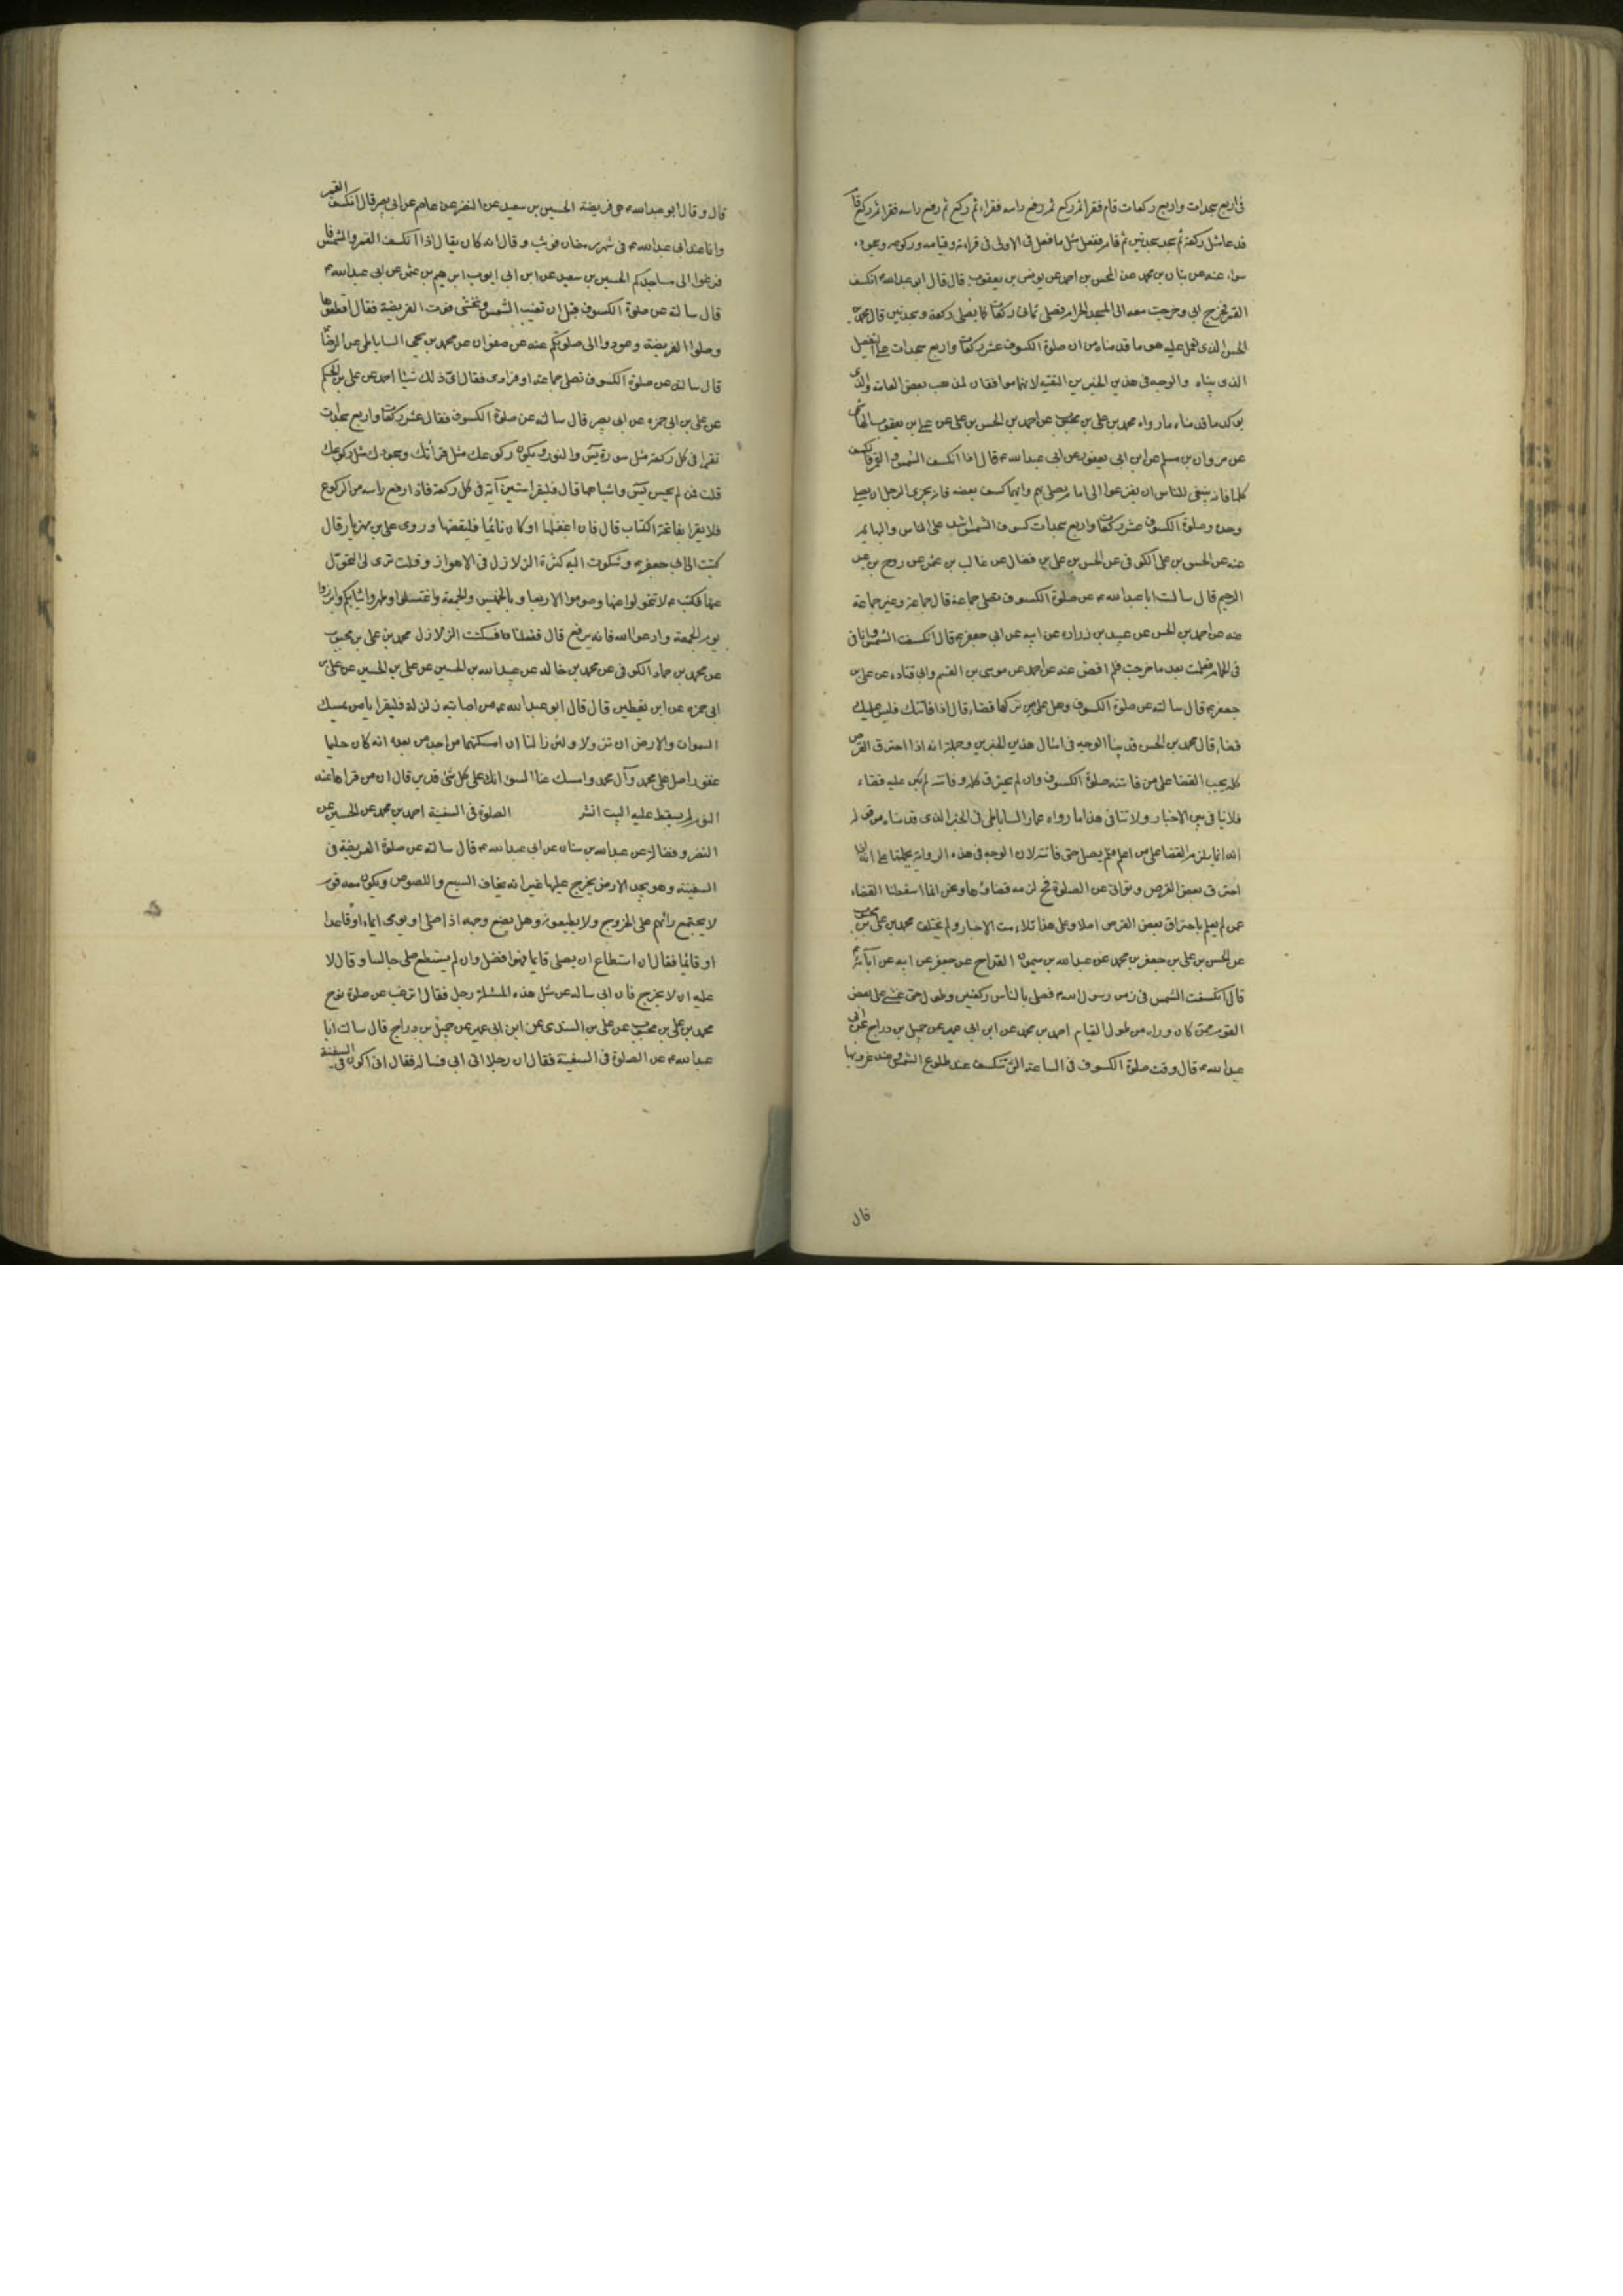 فى اربع سجدات واربع ركعات قام فقرا ثم ركع ثم رفع راسه فقراء ثم ركع ثم رفع راسه فقرا ثم ركع قا
قد عا مثل ركعة ثم سجد سجدتين ثم قام ففعل مثل ما فعل فى الاولى فى قراءته وقيامه وركوعه وسجوده
سواء عنه عن بنان بن محمد عن المحسن بن احمد عن يونس بن يعقوب قال قال ابو عبدالله ع انكسف
القمر فخرج ابى وخرجت معه الى المسجد الحرام فصلى ثمانى ركعات كما يصلى ركعة وسجدتين قال محمد بن
الحسن الذى نعمل عليه هو ما قدمناه من ان صلوة الكسوف عشر ركعات واربع سجدات على التفصيل
الذى بيناه والوجه فى هذين الخبرين التقيه لانهما موافقان لمذهب بعض العامه والذى
يؤكد ما قدمناه ما رواه محمد بن على بن محبوب عن احمد بن الحسن بن على عن على بن يعقوب الهاشمى
عن مروان بن مسلم عن ابن ابى يعفور عن ابى عبدالله ع قال اذا انكسف الشمس والقمر فانكسف
كلها فانه ينبغى للناس ان يفزعوا الى امام يصلى بهم وايهما كسف بعضه فانه يجزى الرجل ان يصلى
وحده وصلوة الكسوف عشر ركعات واربع سجدات كسوف الشمس اشد على الناس والبهايم
عنه عن الحسن بن على الكوفى عن الحسن بن على بن فضال عن غالب بن عثمن عن روح بن عبد
الرحيم قال سالت ابا عبدالله ع عن صلوة الكسوف تصلى جماعة قال جماعة وغير جماعة
عنه عن احمد بن الحسن عن عبيد بن زراره عن ابيه عن ابى جعفر ع قال انكسف الشمس وانا فى
فى الحمام فعلمت بعد ما خرجت فلم اقض عنه عن احمد عن موسى بن القسم وابى قتاده عن على بن
جعفر ع قال سالته عن صلوة الكسوف وهل على من تركها قضاء قال اذا فاتتك فليس عليك
قضاء قال محمد بن الحسن قد بينا الوجه فى امثال هذين الخبرين وجملته انه اذا احترق القرص
كله يجب القضا على من فاتته صلوة الكسوف وان لم يحترق كله وفاتته لم يكن عليه قضاء
فلا ينا فى بين الاخبار ولا تنافى هذا ما رواه عمار الساباطى فى الخبر الذى قدمناه من قوله
انه انما يلزم القضا على من اعلم فلم يصل حتى فاتته لان الوجه فى هذه الرواية يحملها على انه اذا
احترق بعض القرص وتوانى عن الصلوة فح لزمه قضاؤها ونحن انما اسقطنا القضاء
عمن لم يعلم باحتراق بعض القرص اصلا وعلى هذا تلاءمت الاخبار ولم تختلف محمد بن على بن محبوب
عن الحسن بن على بن جعفر بن محمد عن عبدالله بن ميمون القداح عن جعفر عن ابيه عن آبائه ع
قال انكسفت الشمس فى زمن رسول الله ص فصلى بالناس ركعتين وطول حتى غشى على بعض
القوم ممن كان وراءه من طول القيام احمد بن محمد عن ابن ابى عمير عن جميل بن دراج عن ابى
عبدالله ع قال وقت صلوة الكسوف فى الساعة التى تنكسف عند طلوع الشمس وعند غروبها
قال
قال وقال ابو عبدالله ع هى فريضة الحسين بن سعيد عن النضر عن عاصم عن ابى بصير قال انكسف القمر
وانا عند ابى عبدالله ع فى شهر رمضان فوثب وقال انه كان يقال اذا انكسف القمر والشمس فا
فزعوا الى مساجدكم الحسين بن سعيد عن ابن ابى ايوب ابراهيم بن عثمن عن ابى عبدالله ع
قال سالته عن صلوة الكسوف قبل ان تغيب الشمس وتخشى فوت الفريضة فقال اقطعوها
وصلوا الفريضة وعودوا الى صلوتكم عنه عن صفوان عن محمد بن يحيى الساباطى عن الرضا ع
قال سالته عن صلوة الكسوف تصلى جماعة او فرادى فقال اى ذلك شئت احمد عن على بن الحكم
عن على بن ابى حمزه عن ابى بصير قال سالته عن صلوة الكسوف فقال عشر ركعات واربع سجدات
تقرا فى كل ركعة مثل سورة يس والنور ويكون ركوعك مثل قرأتك وسجودك مثل ركوعك
قلت فمن لم يحسن يس واشباهها قال فليقرا ستين آية فى كل ركعة فاذا رفع راسه من الركوع
فلا يقرا بفاتحة الكتاب قال فان اغفلها او كان نائما فليقضها وروى على بن مهزيار قال
كتبت الى ابى جعفر ع وشكوت اليه كثرة الزلازل فى الاهواز وقلت ترى لى التحول
عنها فكتب ع لا تتحولوا عنها وصوموا الاربعا والخميس والجمعة واغتسلوا وطهروا ثيابكم وابرزوا
يوم الجمعة وادعوا الله فانه يرفع قال ففعلنا فسكنت الزلازل محمد بن على بن محبوب
عن محمد بن حماد الكوفى عن محمد بن خالد عن عبيدالله بن الحسين عن على بن الحسين عن على بن
ابى حمزه عن ابن يقطين قال قال ابو عبدالله ع من اصابته زلزلة فليقرا يا من يمسك
السموات والارض ان تزولا ولئن زالتا ان امسكهما من احد من بعده انه كان حليما
غفورا صل على محمد وآل محمد وامسك عنا السوء انك على كل شئ قدير قال ان من قراها عند
النوم لم يسقط عليه البيت انشر الصلوة فى السفينة احمد بن محمد عن الحسين عن
النضر وفضالة عن عبدالله بن سنان عن ابى عبدالله ع قال سالته عن صلوة الفريضة فى
السفينة وهو يجد الارض يخرج عليها غير انه يخاف السبع واللصوص ويكون معه قوم
لا يجتمع رائهم على الخروج ولا يطيعونه وهل يضع وجهه اذا صلى او يومى ايماء او قاعدا
او قائما فقال ان استطاع ان يصلى قايما فهو افضل وان لم يستطع صلى جالسا وقال لا
عليه ان لا يخرج فان ابى ساله عن مثل هذه المسئلة رجل فقال اترغب عن صلوة نوح
محمد بن على بن محبوب عن على بن السندى عن ابن ابى عمير عن جميل بن دراج قال سالت ابا
عبدالله ع عن الصلوة فى السفينة فقال ان رجلا اتى ابى فساله فقال انى اكون فى السفينة